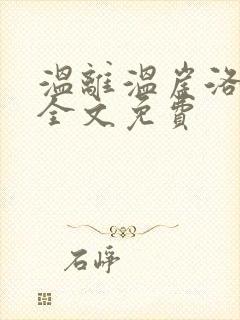 温離温崖洛
全文免費
石崢